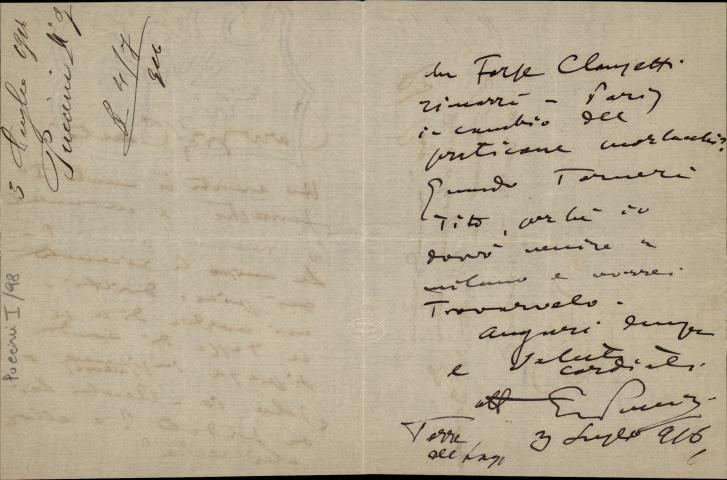 3 Luglio 906
Puccini
R 4/7
906
Puccini I/98
da Forse Clausetti
rimarrà a Parigi
in cambio del
Quando Tornerà
Tito, perché io
dovrò venire a
milano e vorrei
Trovarvelo.
auguri dunque
e saluti
cordiali
aff G Puccini
Torre
del Lago
3 Luglio 906